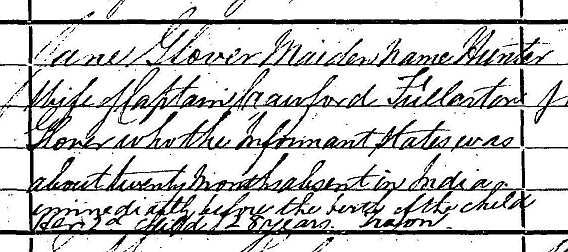 Jane Glover Maiden Name Hunter
Wife of Captain Crawford Fullarton
Glover who the Informant states was
about twenty Months absent in India
immediately before the birth of the child
Her 2d Child 28 years